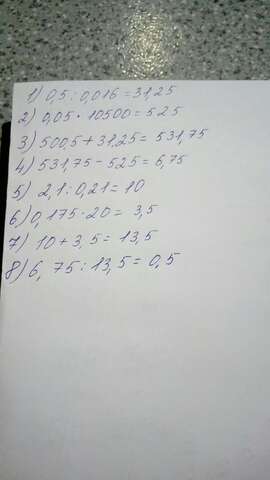 1) 0,5 : 0,016 = 31,25
2) 0,05 · 10500 = 525
3) 500,5 + 31,25 = 531,75
4) 531,75 - 525 = 6,75
5) 2,1 : 0,21 = 10
6) 0,175 · 20 = 3,5
7) 10 + 3,5 = 13,5
8) 6,75 : 13,5 = 0,5